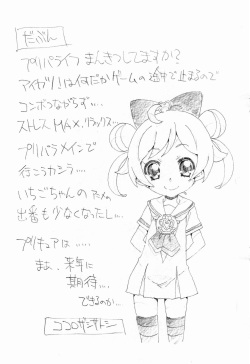 だぶん
プリパライフまんきつしてますか?
アイカツ!は何だかゲームの途中で止まるので
コンボつながらず…
ストレスMAX、リラックス…
プリパラメインで
行こうカシラ…
いちごちゃんのアニメの
出番も少なくなったし…
プリキュアは……
まぁ、来年に
期待…
できるのか…
ココロガシオトシ